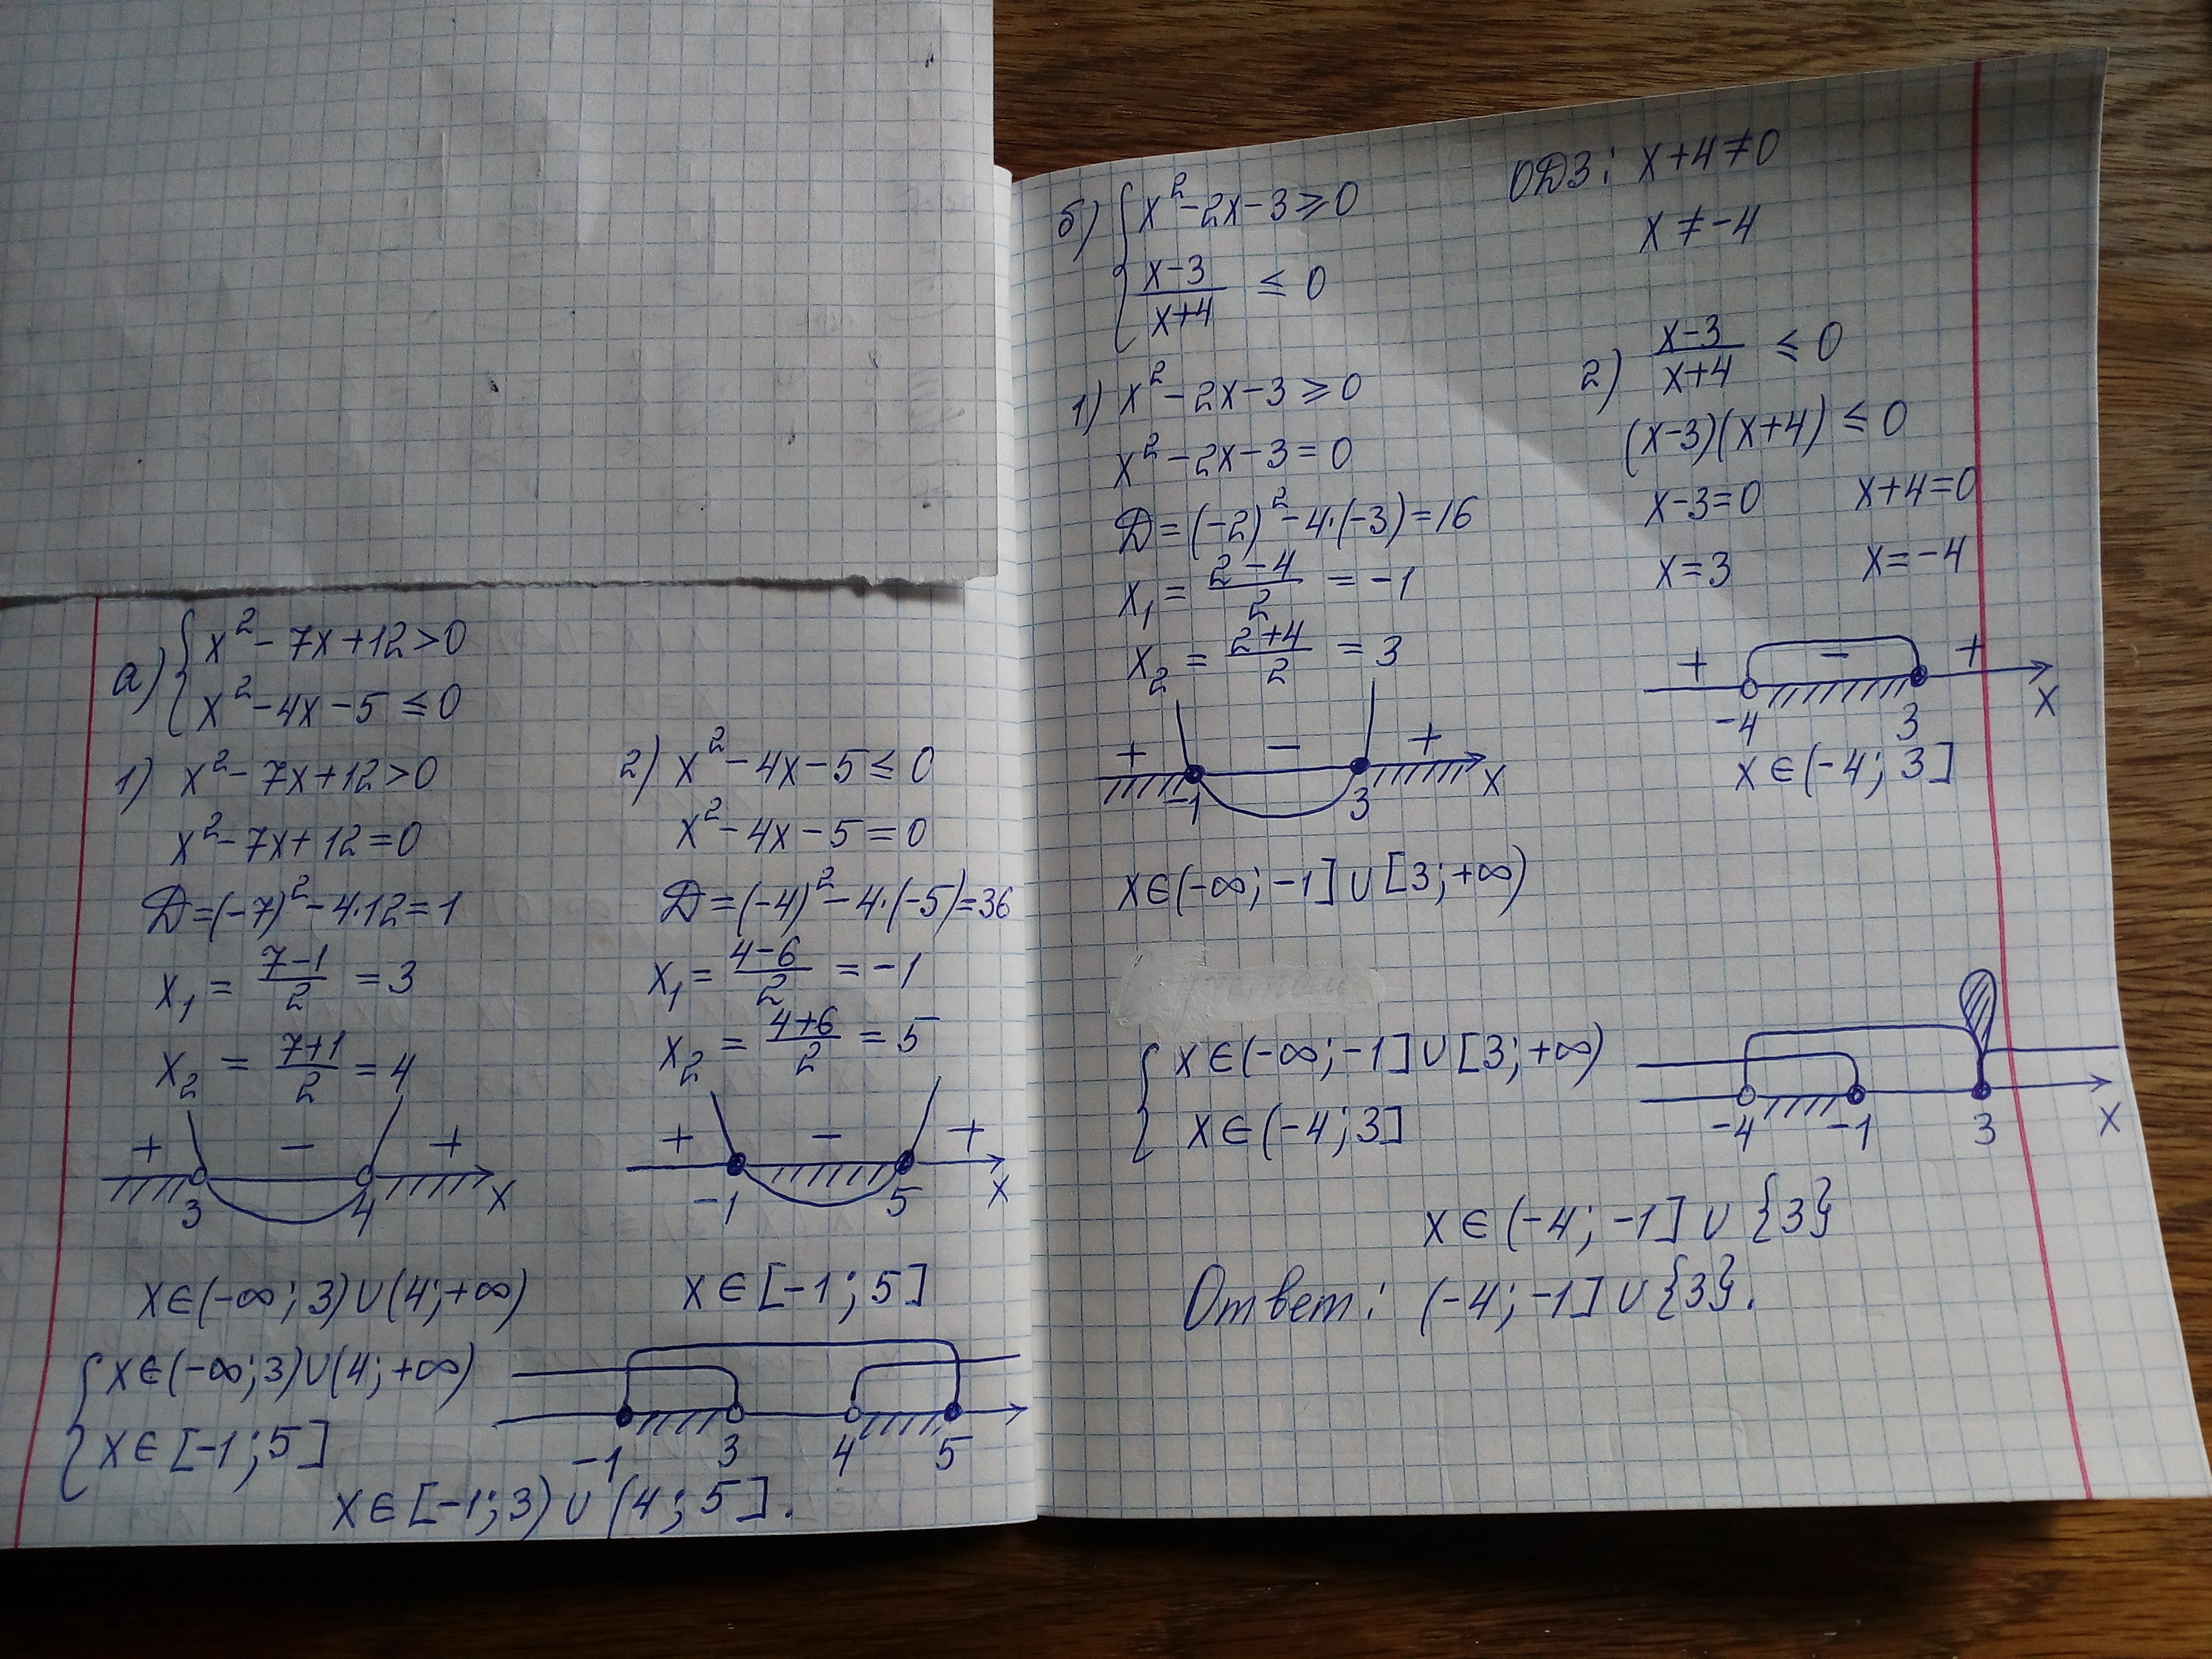 а) { x² - 7x + 12 > 0
x² - 4x - 5 ≤ 0
1) x² - 7x + 12 > 0
x² - 7x + 12 = 0
D = (-7)² - 4·12 = 1
x₁ = (7-1)/2 = 3
x₂ = (7+1)/2 = 4
+ - +
3 4 x
x ∈ (-∞; 3) ∪ (4; +∞)
2) x² - 4x - 5 ≤ 0
x² - 4x - 5 = 0
D = (-4)² - 4·(-5) = 36
x₁ = (4-6)/2 = -1
x₂ = (4+6)/2 = 5
+ - +
-1 5 x
x ∈ [-1; 5]
{ x ∈ (-∞; 3) ∪ (4; +∞)
x ∈ [-1; 5]
-1 3 4 5
x ∈ [-1; 3) ∪ (4; 5].
б) { x² - 2x - 3 ⩾ 0
(x-3)/(x+4) ≤ 0
ОДЗ: x + 4 ≠ 0
x ≠ -4
1) x² - 2x - 3 ⩾ 0
x² - 2x - 3 = 0
D = (-2)² - 4·(-3) = 16
x₁ = (2-4)/2 = -1
x₂ = (2+4)/2 = 3
+ - +
-1 3 x
x ∈ (-∞; -1] ∪ [3; +∞)
2) (x-3)/(x+4) ≤ 0
(x-3)(x+4) ≤ 0
x-3=0 x+4=0
x=3 x=-4
+ - +
-4 3 x
x ∈ (-4; 3]
{ x ∈ (-∞; -1] ∪ [3; +∞)
x ∈ (-4; 3]
-4 -1 3 x
x ∈ (-4; -1] ∪ {3}
Ответ: (-4; -1] ∪ {3}.